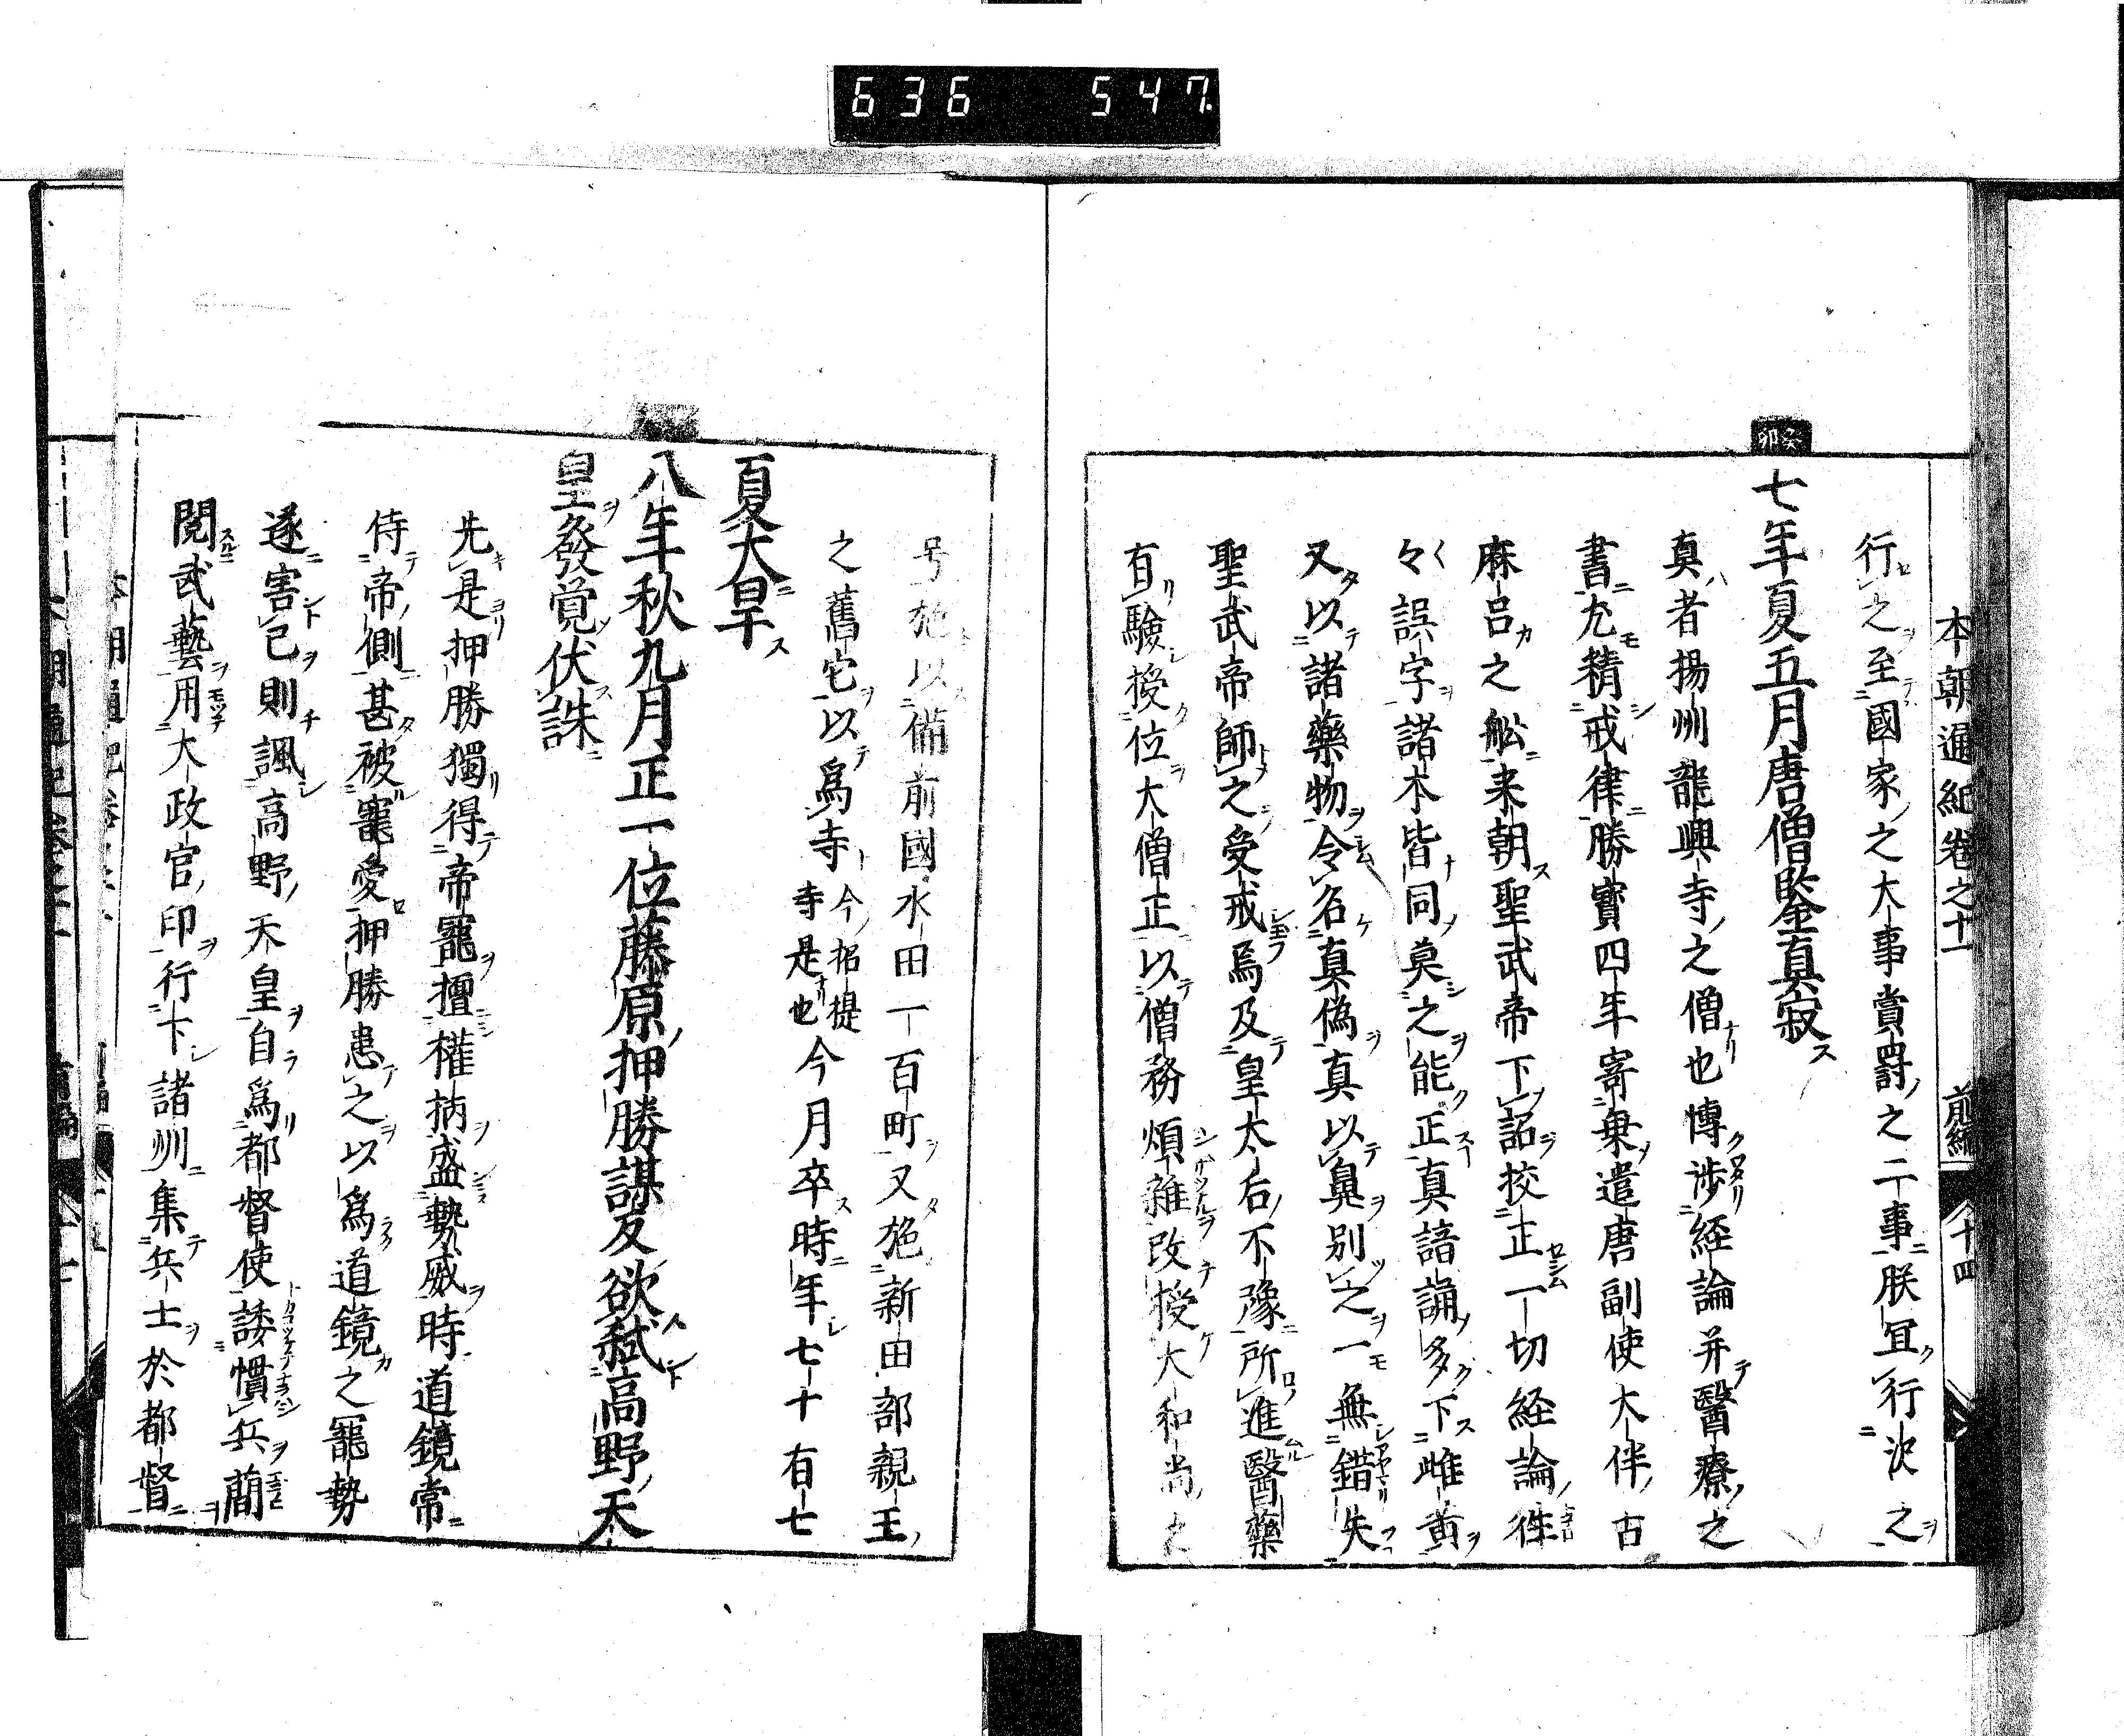 636 547.
本朝通紀卷之十一 前編 十四
行之至國家之大事賞罸之二事朕宜行決之
癸卯
七年夏五月唐僧鑒真寂
真者揚州龍興寺之僧也博渉経論并醫療之
書尤精戒律勝寳四年寄乗遣唐副使大伴古
麻呂之舩来朝聖武帝下詔挍正一切経論徃
々誤字諸本皆同莫之能正真諳誦多下雌黄
又以諸藥物令名真偽真以鼻別之一無錯失
聖武帝師之受戒焉及皇太后不豫所進醫藥
有驗授位大僧正以僧務煩雜改授大和尚之
号施以備前國水田一百町又施新田部親王
之舊宅以爲寺今招提寺是也今月卒時年七十有七
夏大旱
八年秋九月正一位藤原押勝謀反欲弑高野天
皇發覚伏誅
先是押勝獨得帝寵擅權柄盛勢威時道鏡常
侍帝側甚被寵愛押勝患之以爲道鏡之寵勢
遂害己則諷高野天皇自爲都督使諉慣兵蕳
閲武藝用大政官印行下諸州集兵士於都督